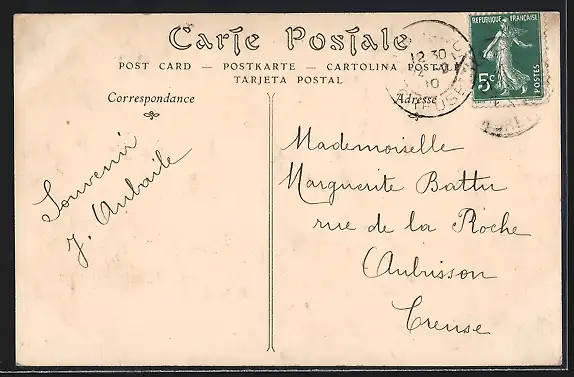 Carte Postale
POST CARD — POSTKARTE — CARTOLINA POSTALE
TARJETA POSTAL
Correspondance
Adresse
REPUBLIQUE FRANÇAISE
5c
POSTES
12 30
CREUSE
Souvenir
J. Aubaile
Mademoiselle
Marguerite Battu
rue de la Roche
Aubusson
Creuse